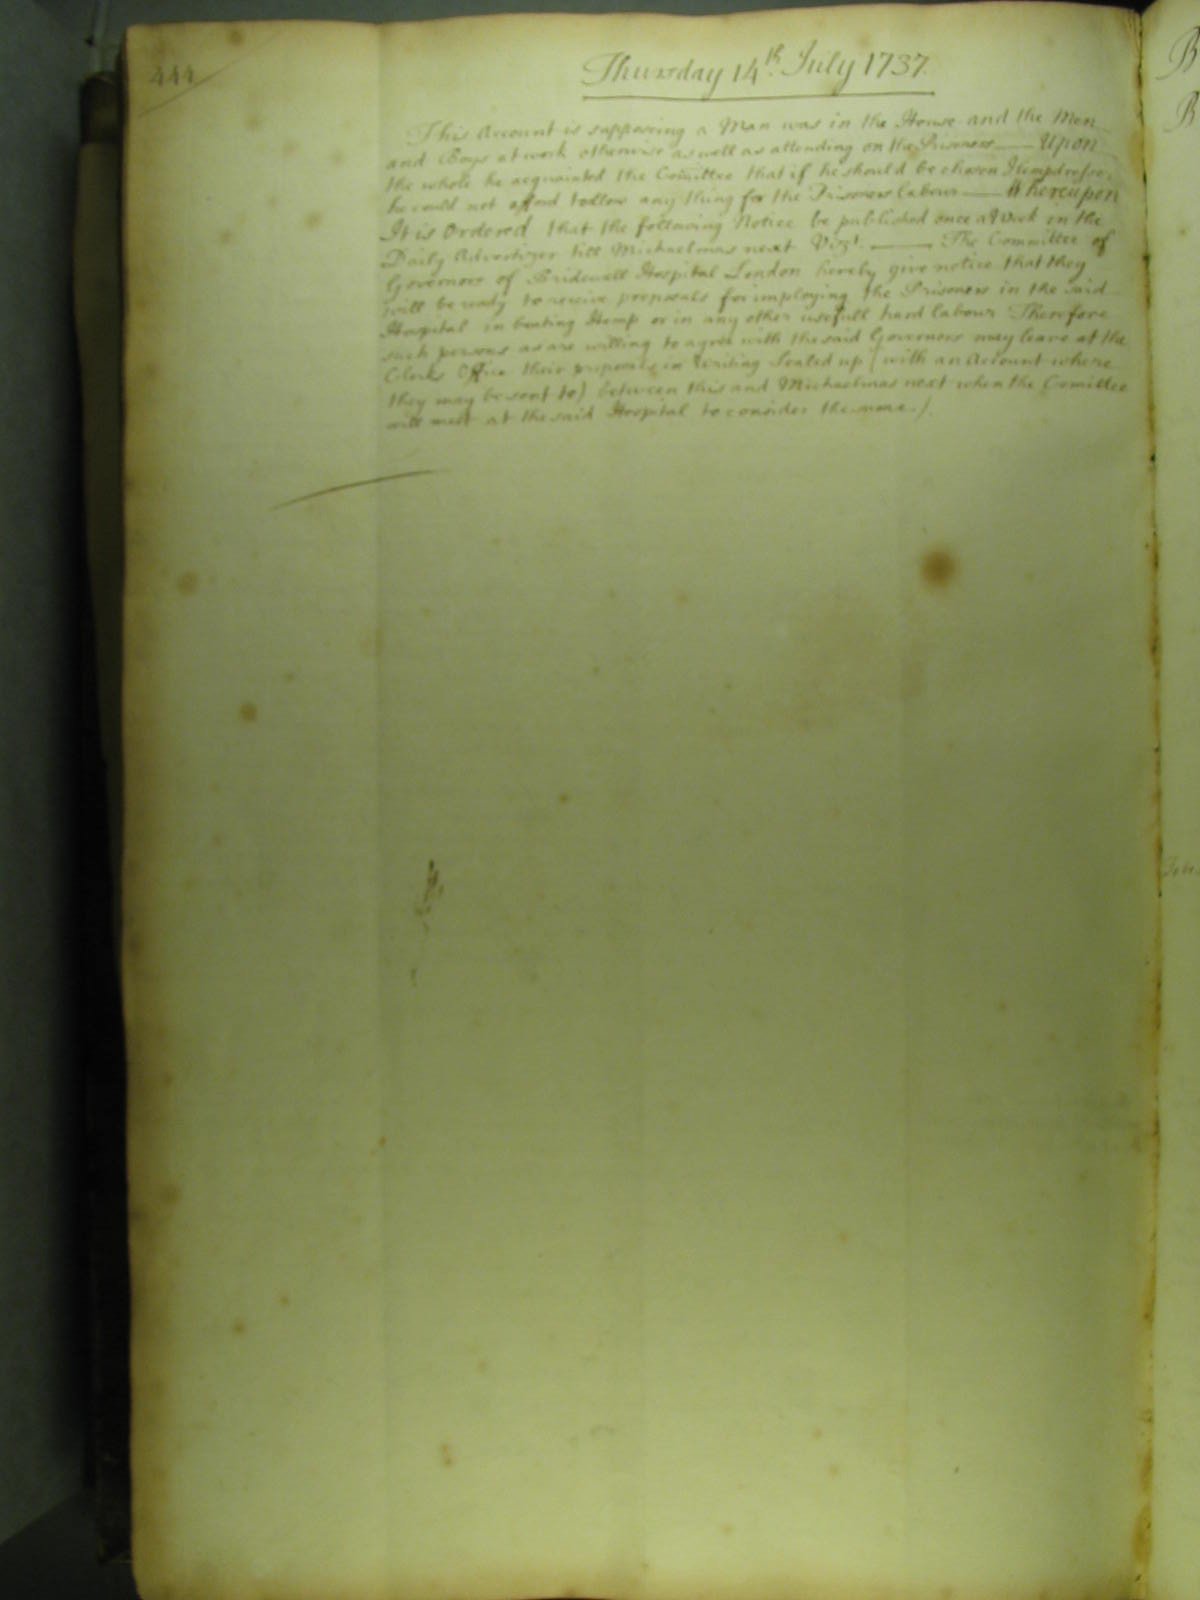 444
Thursday 14th. July 1737.
This Account is supposeing a Man was in the House and the Men
and Boys at work otherwise as well as attending on the Prisoners —— Upon
the whole he acquainted the Comittee that if he should be chosen Hempdresser
he could not afford to allow any thing for the Prisoners labour —— Whereupon
It is Ordered that the following Notice be published once a Week in the
Daily Advertizer till Michaelmas next Vizt. —— The Committee of
Governors of Bridewell Hospital London hereby give notice that they
will be ready to receive proposals for imploying the Prisoners in the said
Hospital in beating Hemp or in any other usefull hard labour Therefore
such persons as are willing to agree with the said Governors may leave at the
Clerks Office their proposals in Writing Sealed up (with an Account where
they may be sent to) between this and Michaelmas next when the Comittee
will meet at the said Hospital to consider the same./.
B
B